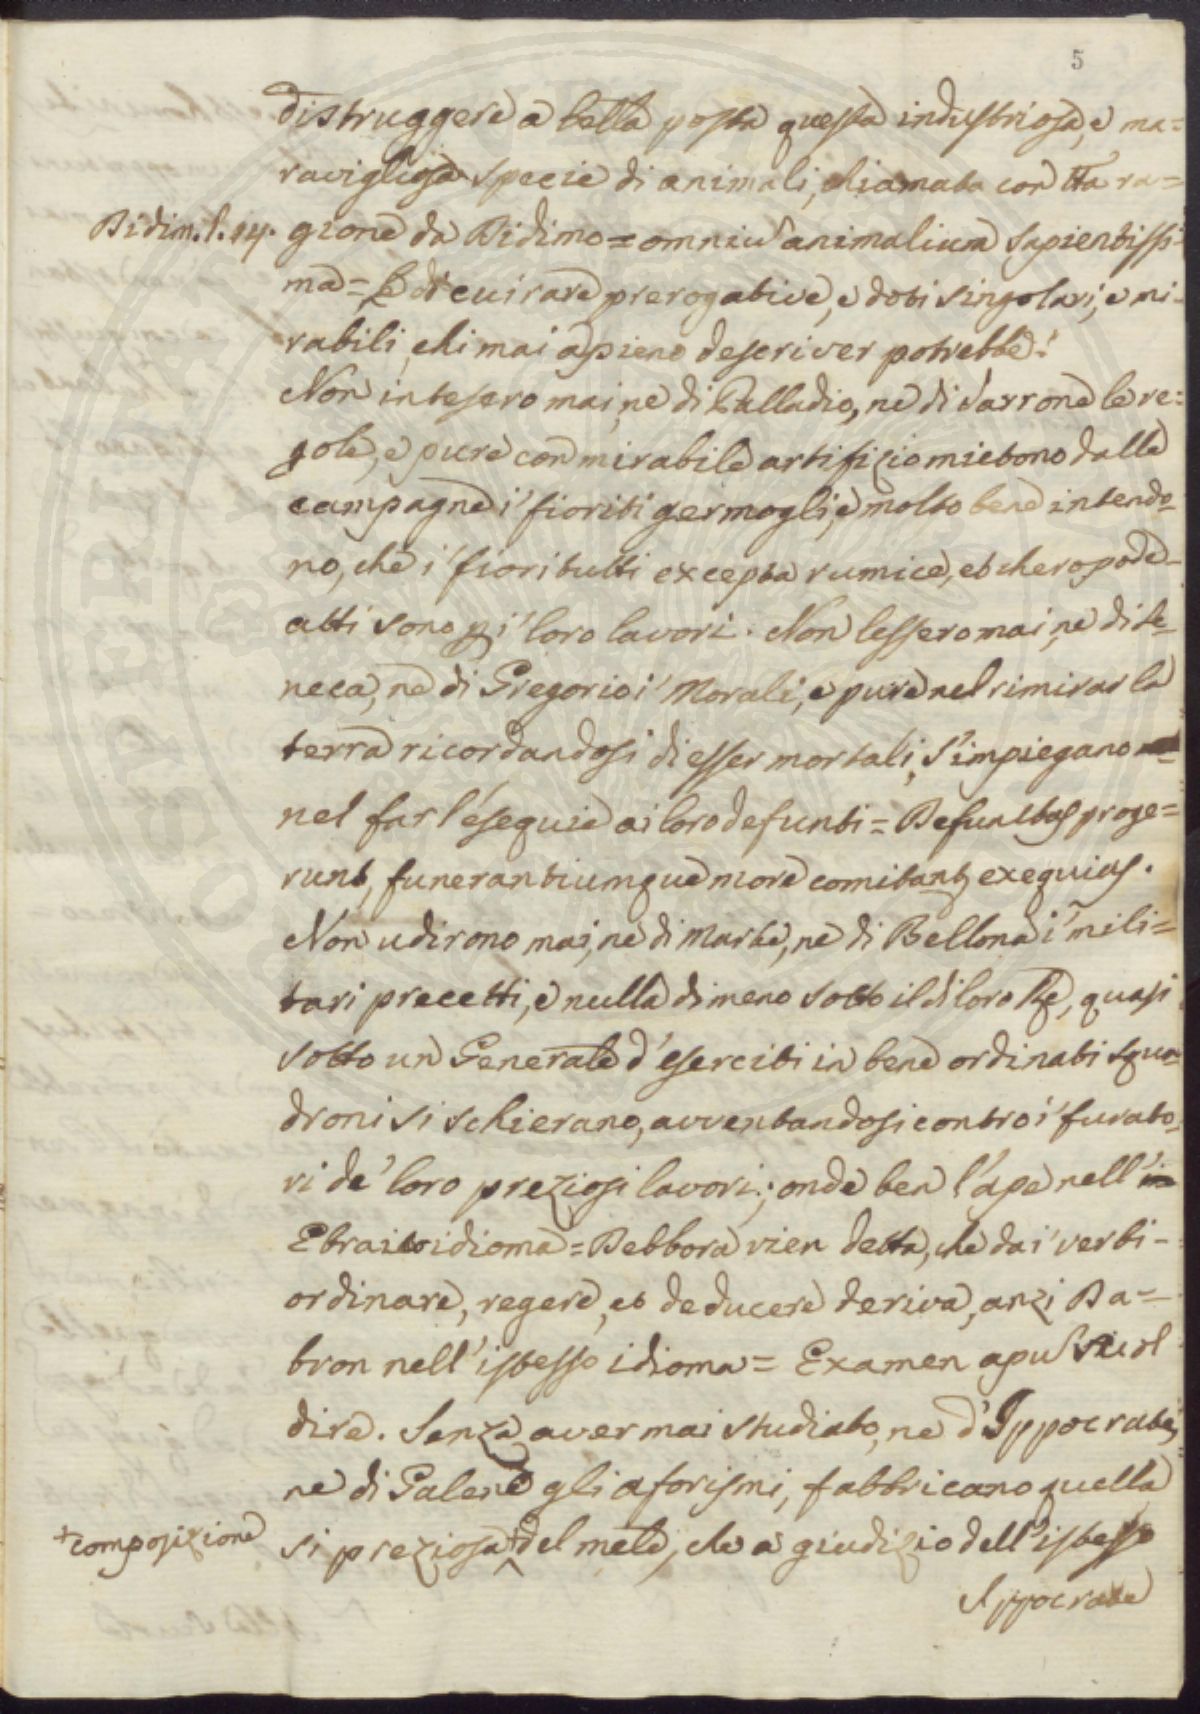 5
distruggere a bella posta questa industriosa, e ma=
ravigliosa specie di animali, chiamata con tta ra=
Didim. l. 14. gione da Didimo = omniu animalium sapientissi-
ma = Le di cui rare prerogative, e doti singolari, e mi-
rabili, chi mai a pieno descriver potrebbe?
Non intesero mai, ne di Palladio, ne di Varrone le re=
gole, e pure con mirabile artifizio mietono dalle
campagne i' fioriti germogli, e molto bene intendo-
no, che i' fiori tutti excepta rumice, et cheropode-
atti sono p i' loro lavori. Non lessero mai, ne di Se-
neca, ne di Gregorio i' Morali, e pure nel rimirar la
terra ricordandosi di esser mortali, s'impiegano
nel far l'esequie ai loro defunti = Defunctas proge=
runt, funerantiumque more comitant exequias.
Non udirono mai, ne di Marte, ne di Bellona i' mili=
tari precetti, e nulla di meno sotto il di loro Re, quasi
sotto un Generale d'eserciti in bene ordinati squa-
droni si schierano, avventandosi contro i' furato-
ri de' loro preziosi lavori; onde ben l'ape nell'
Ebraico idioma = Debbora vien detta, che da i' verbi-
ordinare, regere, et deducere deriva, anzi Da=
bron nell'istesso idioma = Examen apu vuol
dire. Senza aver mai studiato, ne d'Ippocrate,
ne di Galeno gli aforismi, fabbricano quella
+composizione si preziosa + del mele, che a giudizio dell'istesso
Ippocrate